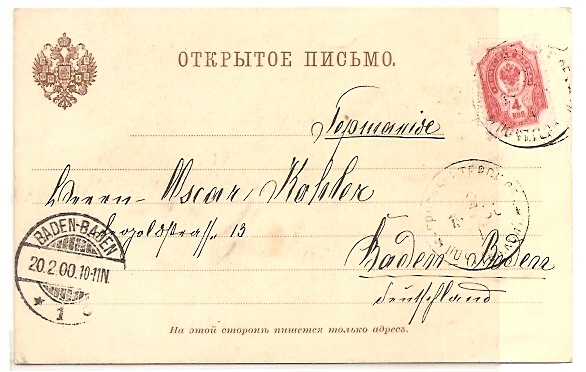 ОТКРЫТОЕ ПИСЬМО.
4
КОП
Германiя
Herrn Oscar Kohler
Leopoldstrasse 13
Baden-Baden
Deutschland
BADEN-BADEN
20.2.00.10-11N.
* 1
На этой сторонѣ пишется только адресъ.